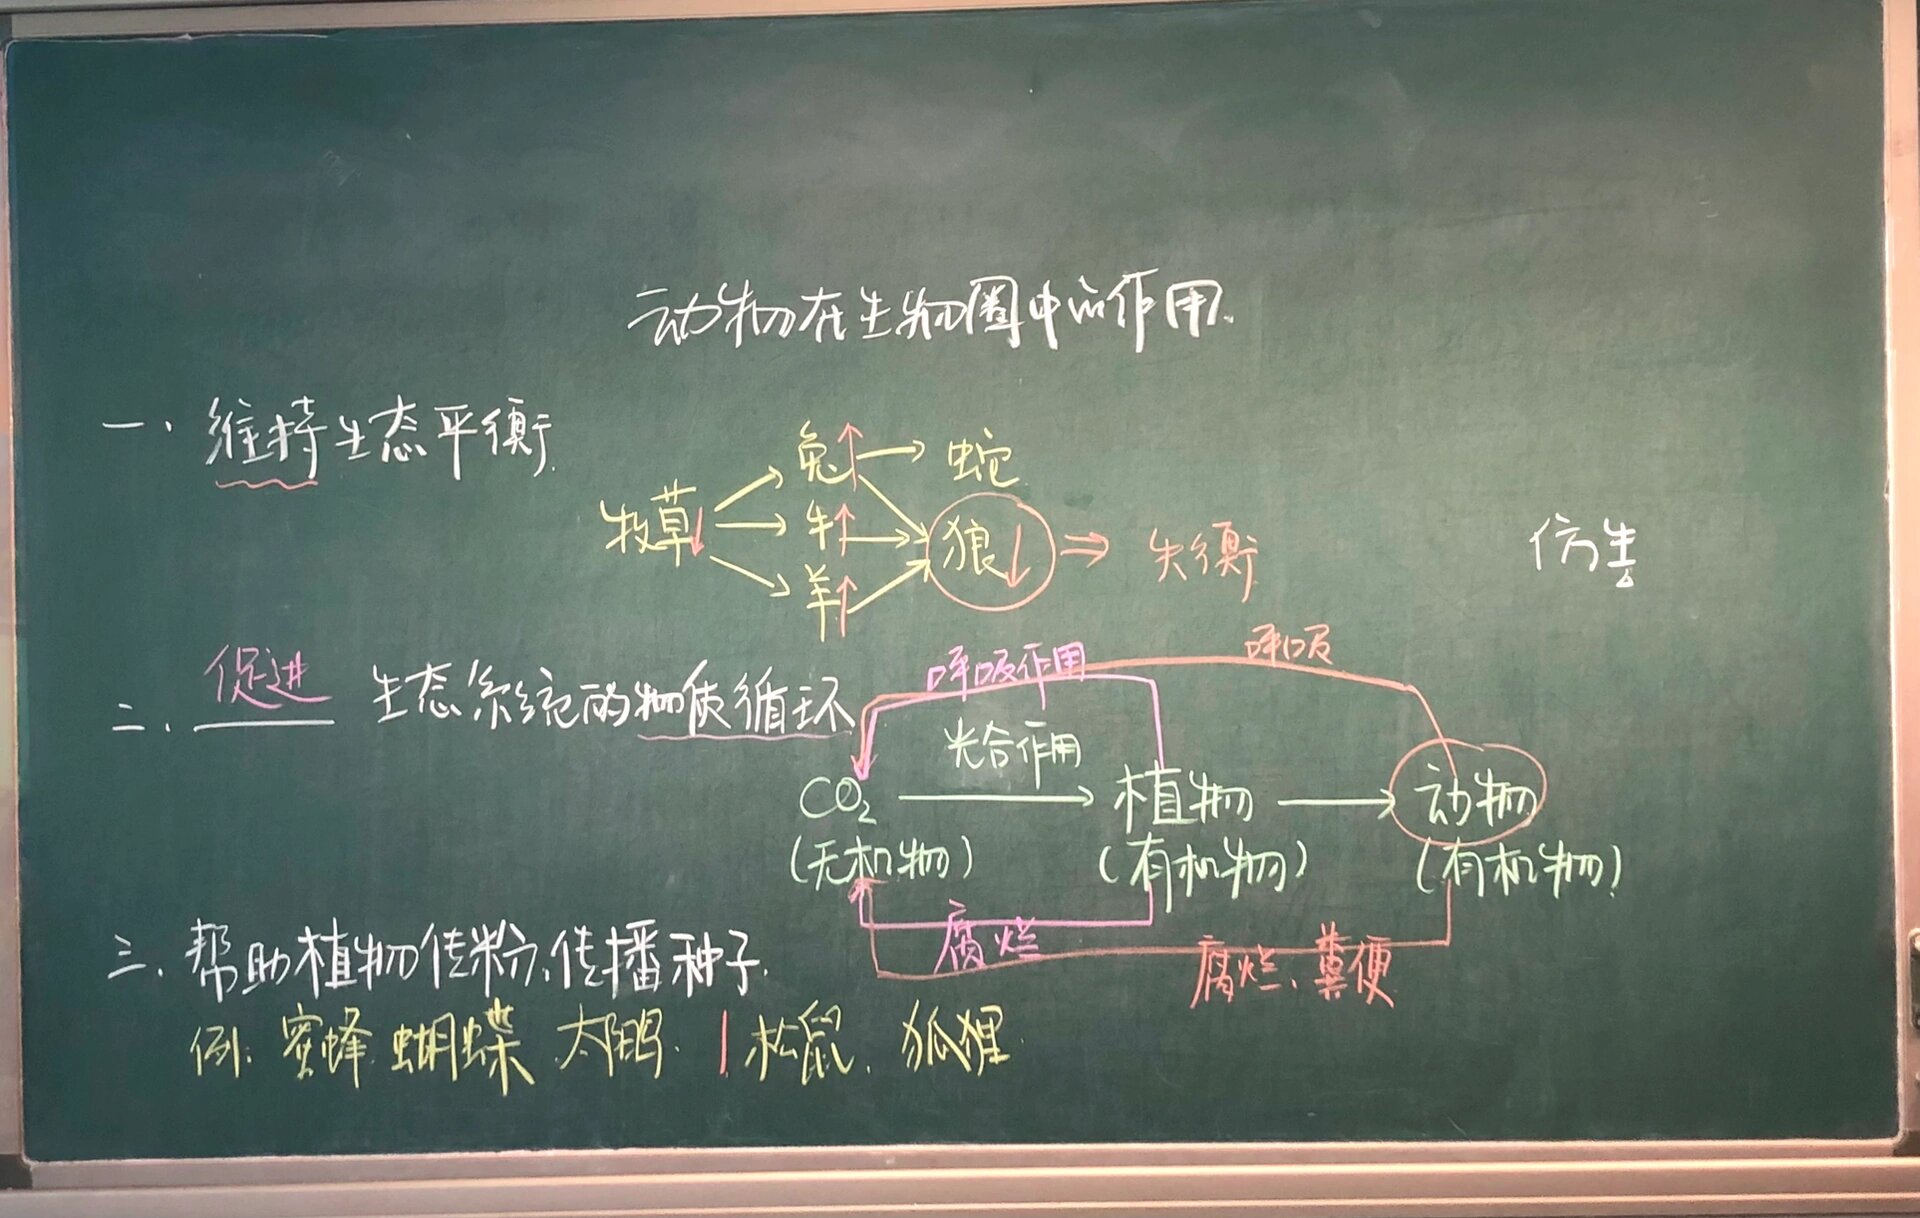 动物在生物圈中的作用.
一、维持生态平衡.
兔↑ → 蛇
牧草↓ → 牛↑ → 狼↓ ⇒ 失衡
羊↑
仿生
促进
二、____ 生态系统的物质循环
呼吸作用 呼吸
光合作用
CO₂ → 植物 → 动物
(无机物) (有机物) (有机物)
腐烂
腐烂、粪便
三、帮助植物传粉、传播种子.
例: 蜜蜂. 蝴蝶 太阳鸟. | 松鼠. 狐狸.